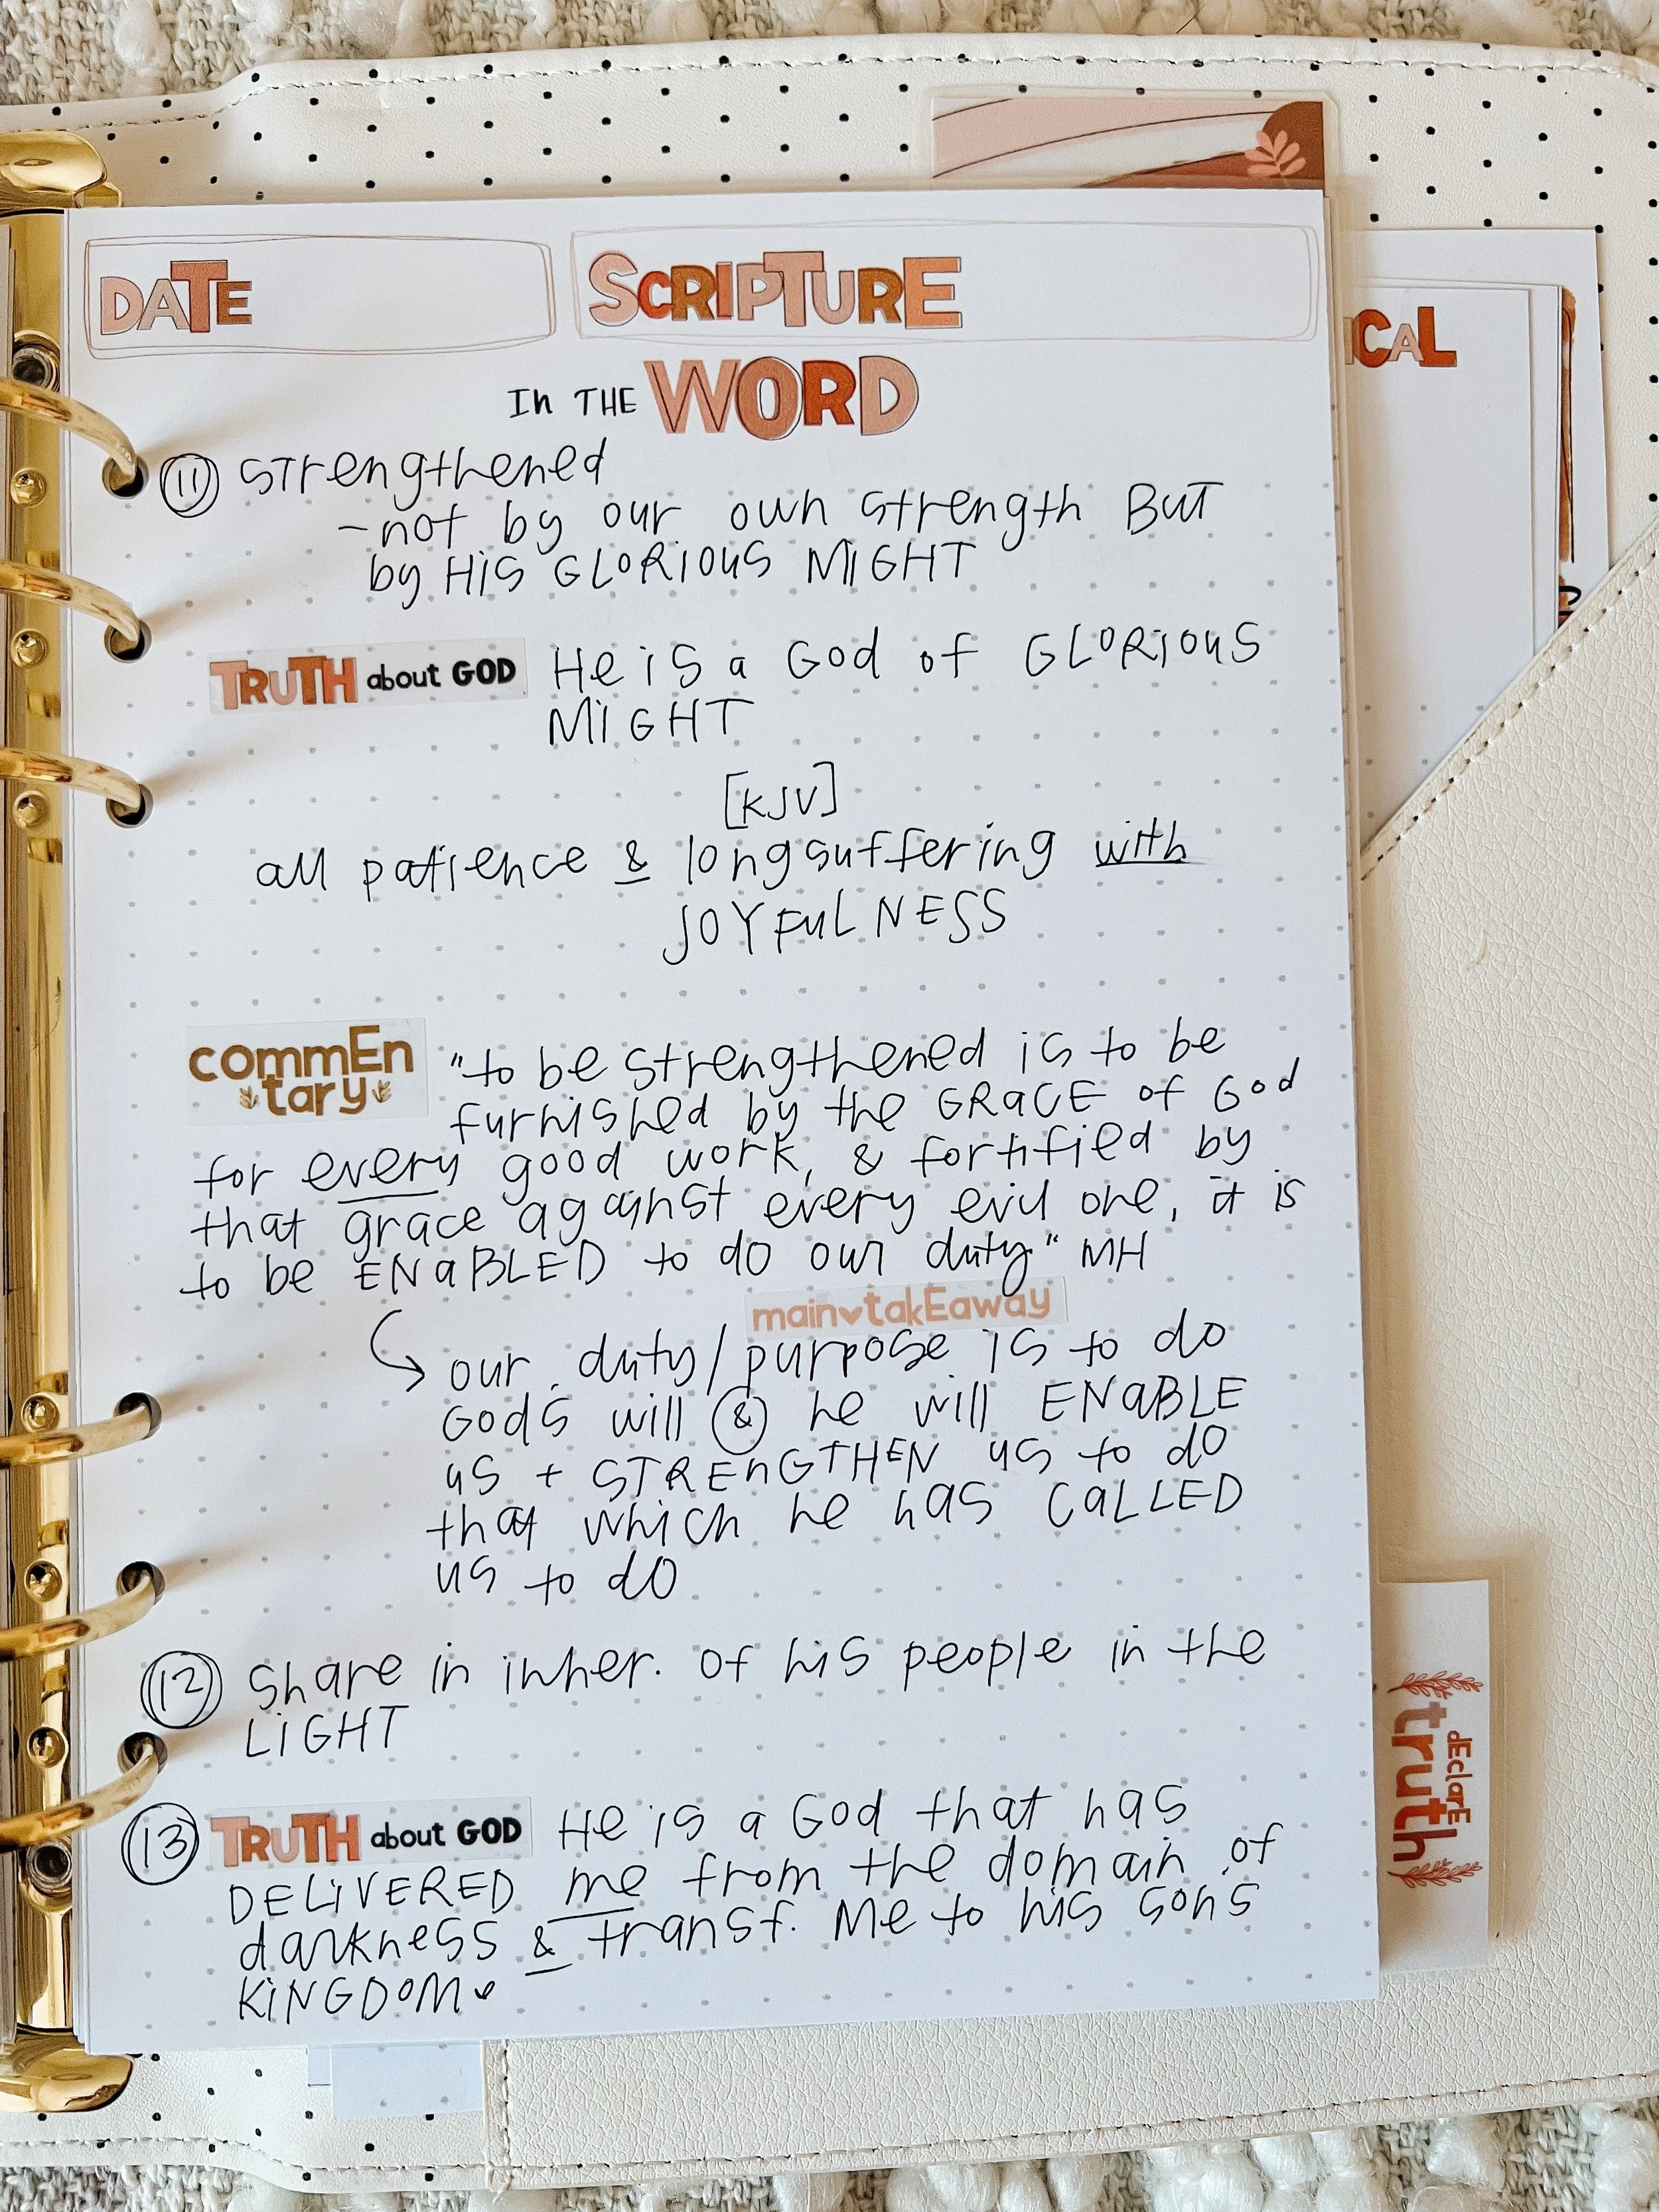 DATE SCRIPTURE
CAL
In THE WORD
11 strengthened
-not by our own strength BUT
by HiS GLORiOUS MIGHT
TRUTH about GOD He is a God of GLORiOUS
MiGHT
[KJV]
all patience & longsuffering with
JOYFULNESS
commEn
tary "to be strengthened is to be
furnished by the GRaCE of God
for every good work, & fortified by
that grace against every evil one, it is
to be ENaBLED to do our duty." MH
main takEaway
our duty/purpose is to do
Gods will & he will ENaBLE
us + STRENGTHEN us to do
that which he has CaLLED
us to do
12 Share in inher. of his people in the
LiGHT
13 TRUTH about GOD He is a God that has
DELiVERED me from the domain of
darkness & transf. Me to his son's
KiNGDOM
dEclarE
truth